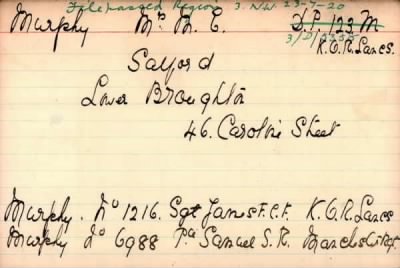 File passed Region 3. N.W. 23-7-20
Murphy Mrs M. E. D.P. 123 M
3/D/
K.O.R. Lancs.
Salford
Lower Broughton
46. Caroline Street
Murphy. No 1216. Sgt James F.C.F. K.O.R. Lancs
Murphy No 6988 Pte Samuel S.R. Manchester Rgt.